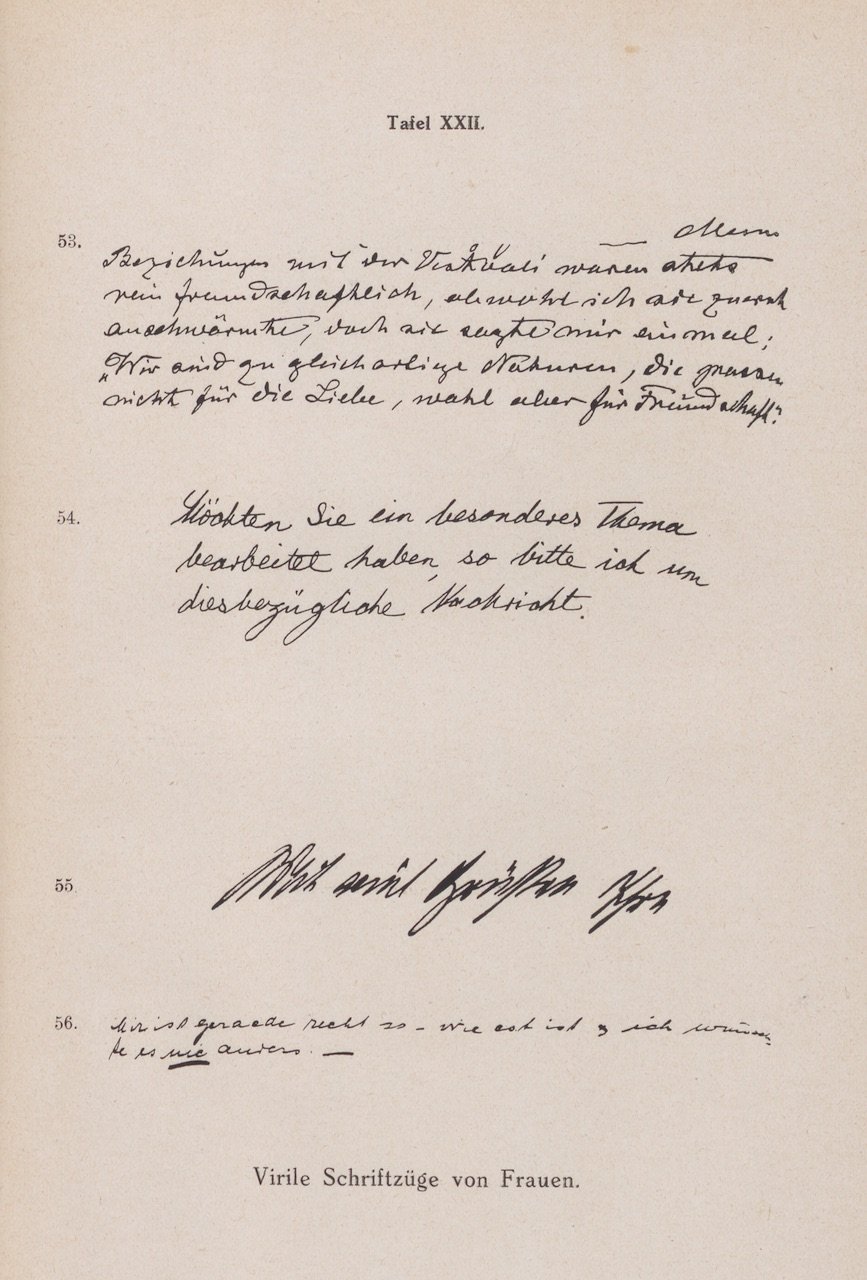 Tafel XXII.
53.
Meine
Beziehungen mit der Vestvali waren stets
rein freundschaftlich, obwohl ich sie zuerst
anschwärmte, doch sie sagte mir einmal;
„Wir sind zu gleichartige Naturen, die passen
nicht für die Liebe, wohl aber für Freundschaft."
54.
Möchten Sie ein besonderes Thema
bearbeitet haben, so bitte ich um
diesbezügliche Nachricht.
55
Mit viel Grüßen Ihre
56.
Mir ist geraede recht so – wie est ist ich wünsch-
te es nie anders. —
Virile Schriftzüge von Frauen.